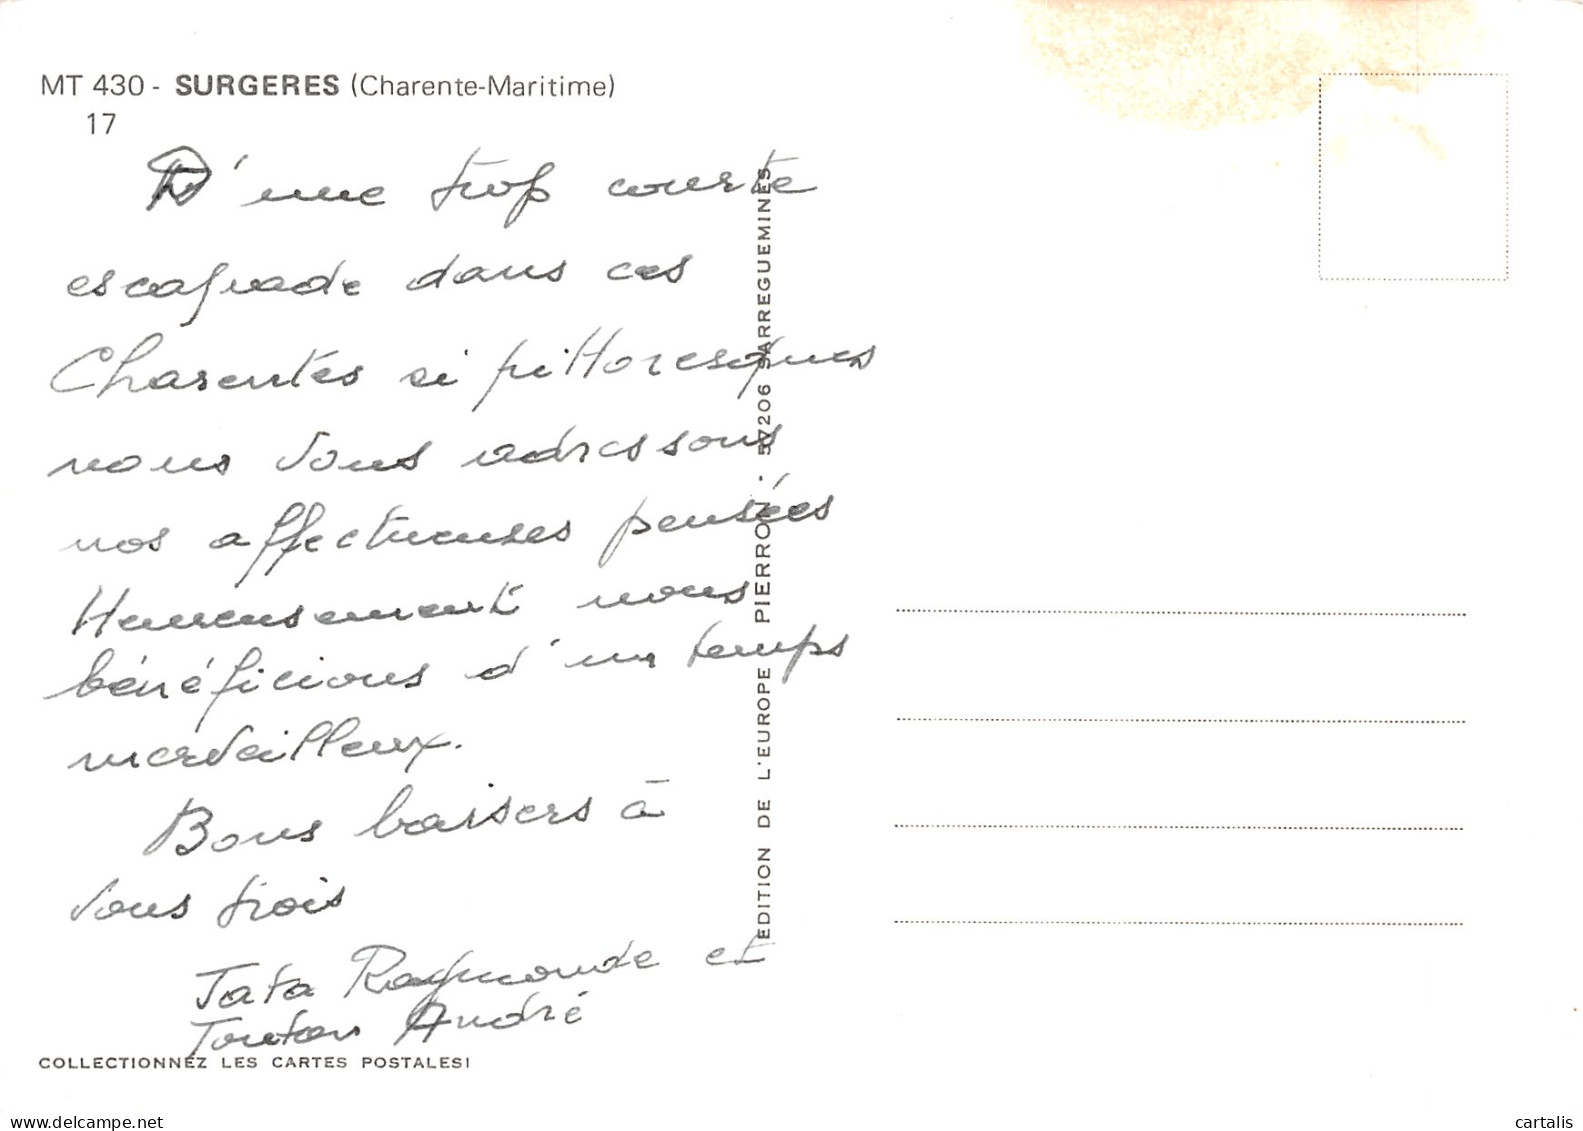 MT 430 - SURGERES (Charente-Maritime)
17
D'une trop courte
escapade dans ces
Charentes si pittoresques
nous vous adressons
nos affectueuses pensées
Heureusement nous
bénéficions d'un temps
merveilleux.
Bons baisers à
vous trois
Tata Raymonde et
Tonton André
COLLECTIONNEZ LES CARTES POSTALES!
EDITION DE L'EUROPE PIERRON - 57206 SARREGUEMINES
delcampe.net
cartalis